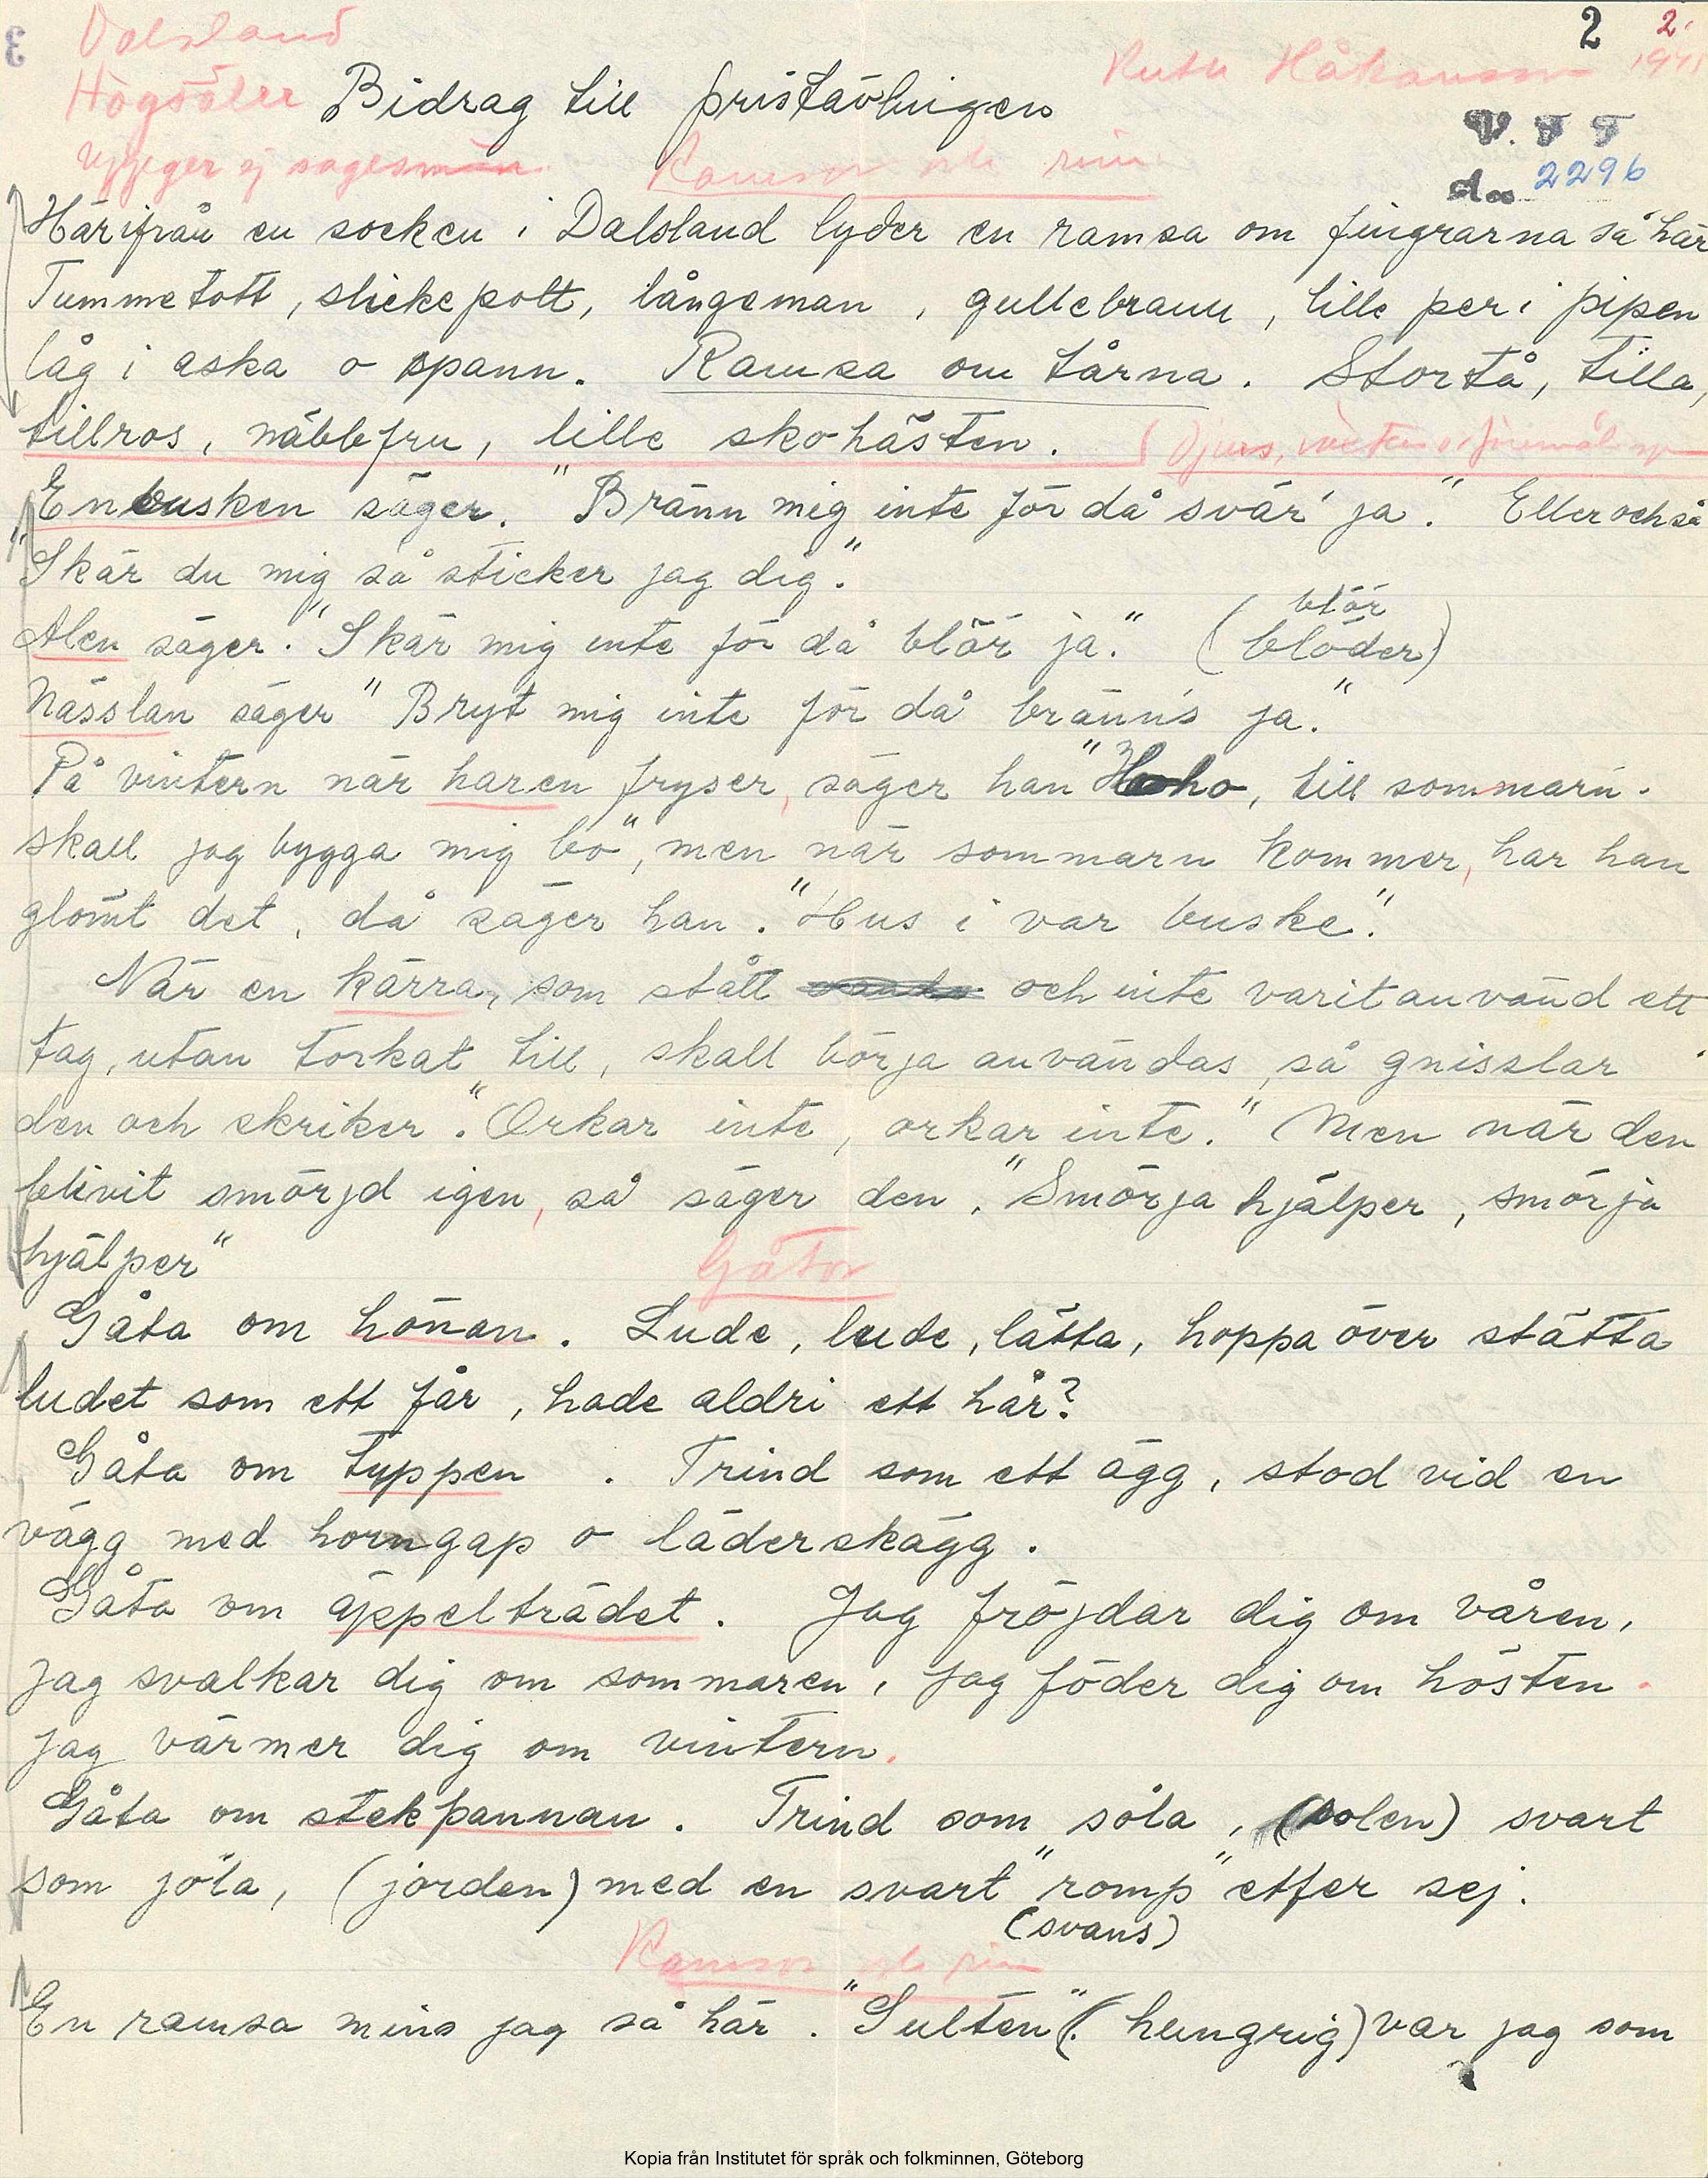 2 2
3 Dalsland
Ruth Håkansson 1941
Högsäter Bidrag till pristävlingen
V. F F
uppger ej sagesmän. Ramsor och rim
d∞ 2296
Härifrån en socken i Dalsland lyder en ramsa om fingrarna så här
Tummetott, slickepott, långeman, gullebrann, lille per i pipen
låg i aska o spann. Ramsa om tårna. Stortå, tilla,
tillros, näbbfru, lille skohästen. Djurs, växters o. föremåls
"Enbusken säger. "Bränn mig inte för då svär' ja". Eller också
"Skär du mig så sticker jag dig."
blör
Alen säger. "Skär mig inte för då blär ja." (blöder)
Nässlan säger "Bryt mig inte för då bränn's ja."
På vintern när haren fryser, säger han "Hoho, till sommarn
skall jag bygga mig bo", men när sommarn kommer, har han
glömt det, då säger han. "Hus i var buske".
När en kärra, som stått och inte varit använd ett
tag, utan torkat till, skall börja användas, så gnisslar
den och skriker. "Orkar inte, orkar inte." Men när den
blivit smörjd igen, så säger den. "Smörja hjälper, smörja
hjälper"
Gåtor
Gåta om hönan. Lude, lude, lätta, hoppa över stätta
ludet som ett får, hade aldri ett hår?
Gåta om tuppen. Trind som ett ägg, stod vid en
vägg med horngap o läderskägg.
Gåta om äppelträdet. Jag fröjdar dig om våren,
jag svalkar dig om sommaren, jag föder dig om hösten.
jag värmer dig om vintern.
Gåta om stekpannan. Trind som söla, (solen) svart
som jöla, (jorden) med en svart "romp" etfer sej.
(svans)
Ramsor och rim
En ramsa mins jag så här. "Sulten" (hungrig) var jag som
Kopia från Institutet för språk och folkminnen, Göteborg